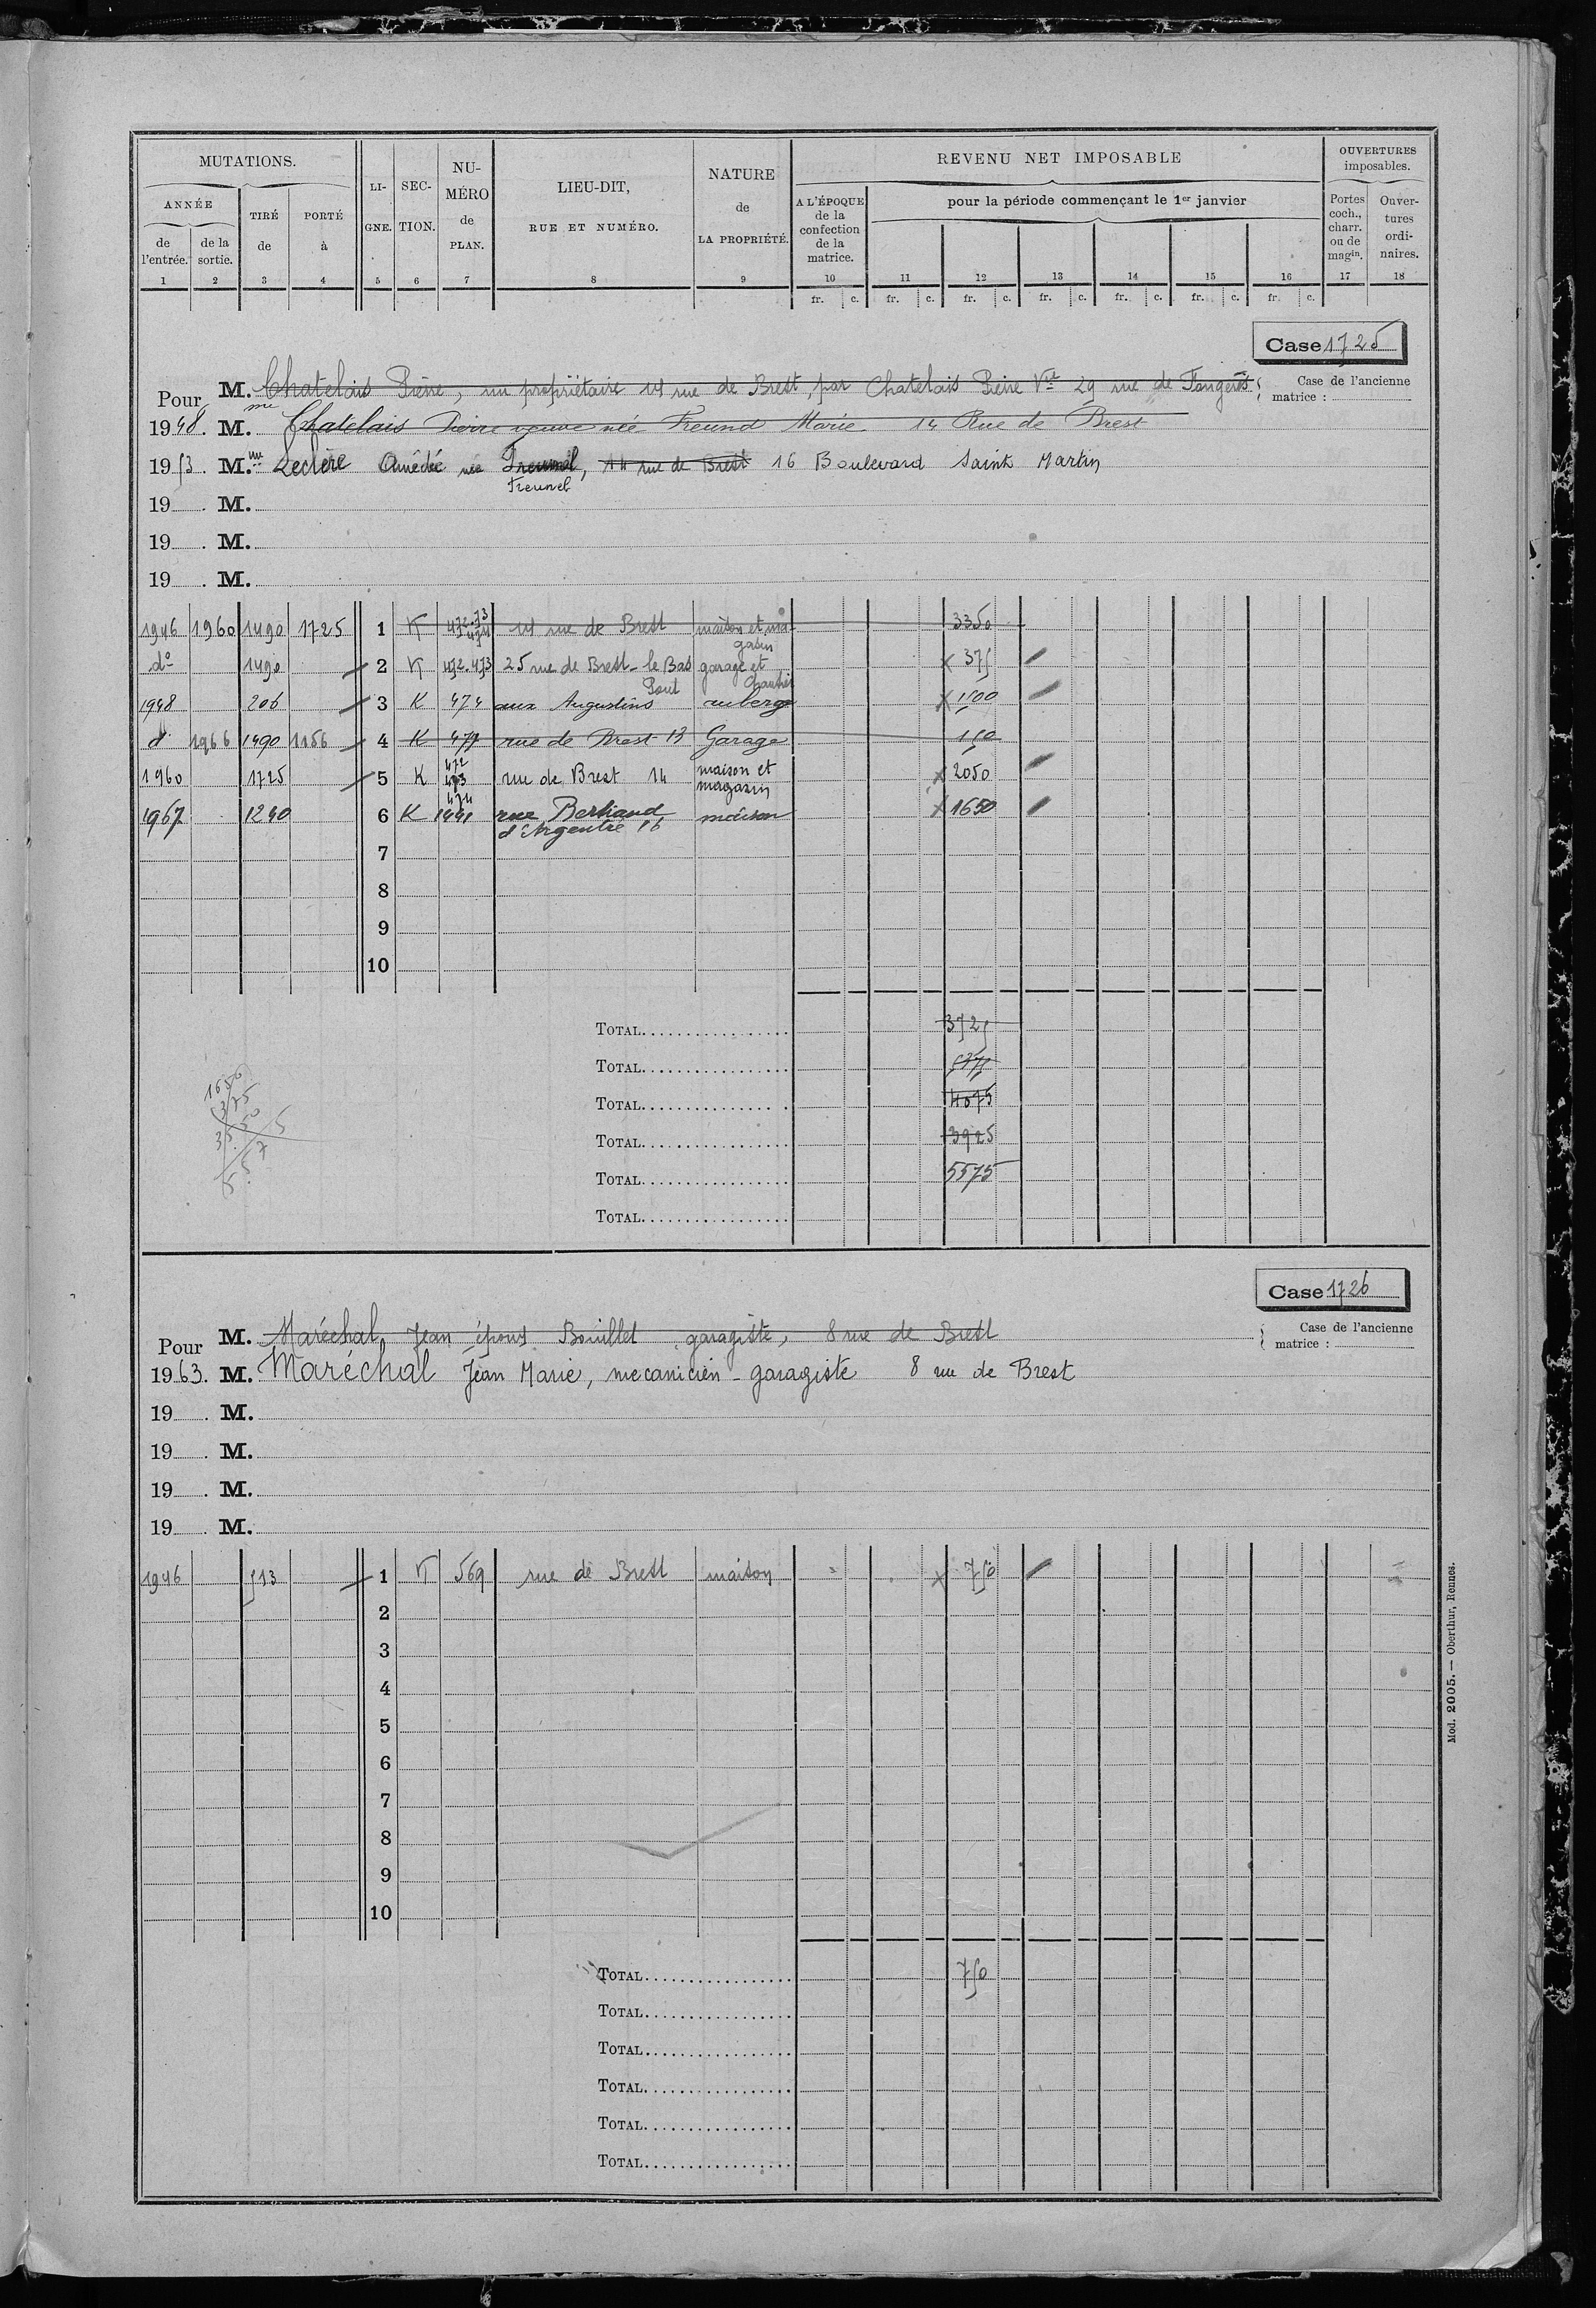 MUTATIONS.
ANNÉE
de l'entrée.
de la sortie.
TIRÉ de
PORTÉ à
LI-GNE.
SEC-TION.
NU-MÉRO de PLAN.
LIEU-DIT, RUE ET NUMÉRO.
NATURE de LA PROPRIÉTÉ.
REVENU NET IMPOSABLE
A L'ÉPOQUE de la confection de la matrice.
pour la période commençant le 1er janvier
OUVERTURES imposables.
Portes coch., charr. ou de magin.
Ouver-tures ordi-naires.
1 2 3 4 5 6 7 8 9 10 11 12 13 14 15 16 17 18
fr. c. fr. c. fr. c. fr. c. fr. c. fr. c. fr. c.
Case 1725
Pour M. Chatelais Pierre, un propriétaire 14 rue de Brest, par Chatelais Pierre Vve 29 rue de Fougères
Case de l'ancienne matrice :
1948. Mme Chatelais Pierre veuve née Freund Marie 14 Rue de Brest
1953. Mme Leclère Amédée née Freunel, 14 rue de Brest 16 Boulevard Saint Martin
Freunel
19 . M.
19 . M.
19 . M.
1946 1960 1490 1725 1 K 472.73 474 14 rue de Brest maison et magasin 3350
do 1490 2 K 472.473 25 rue de Brest - le Bas Pont garage et 375
1948 206 3 K 474 aux Augustins auberge 1500
d° 1966 1490 1156 4 K 477 rue de Brest 13 Garage 150
1960 1725 5 K 472 473 474 rue de Brest 14 maison et magasin 2050
1967 1240 6 K 1441 rue Bertrand d'Argentré 16 maison 1650
7
8
9
10
TOTAL 3725
TOTAL 5375
TOTAL 4075
TOTAL 3925
TOTAL 5575
TOTAL
Case 1726
Pour M. Maréchal Jean époux Bouillet garagiste, 8 rue de Brest
Case de l'ancienne matrice :
1963. M. Maréchal Jean Marie, mecanicien - garagiste 8 rue de Brest
19 . M.
19 . M.
19 . M.
19 . M.
1946 513 1 K 569 rue de Brest maison 750
2
3
4
5
6
7
8
9
10
TOTAL 750
TOTAL
TOTAL
TOTAL
TOTAL
TOTAL
Mod. 2005. — Oberthur, Rennes.